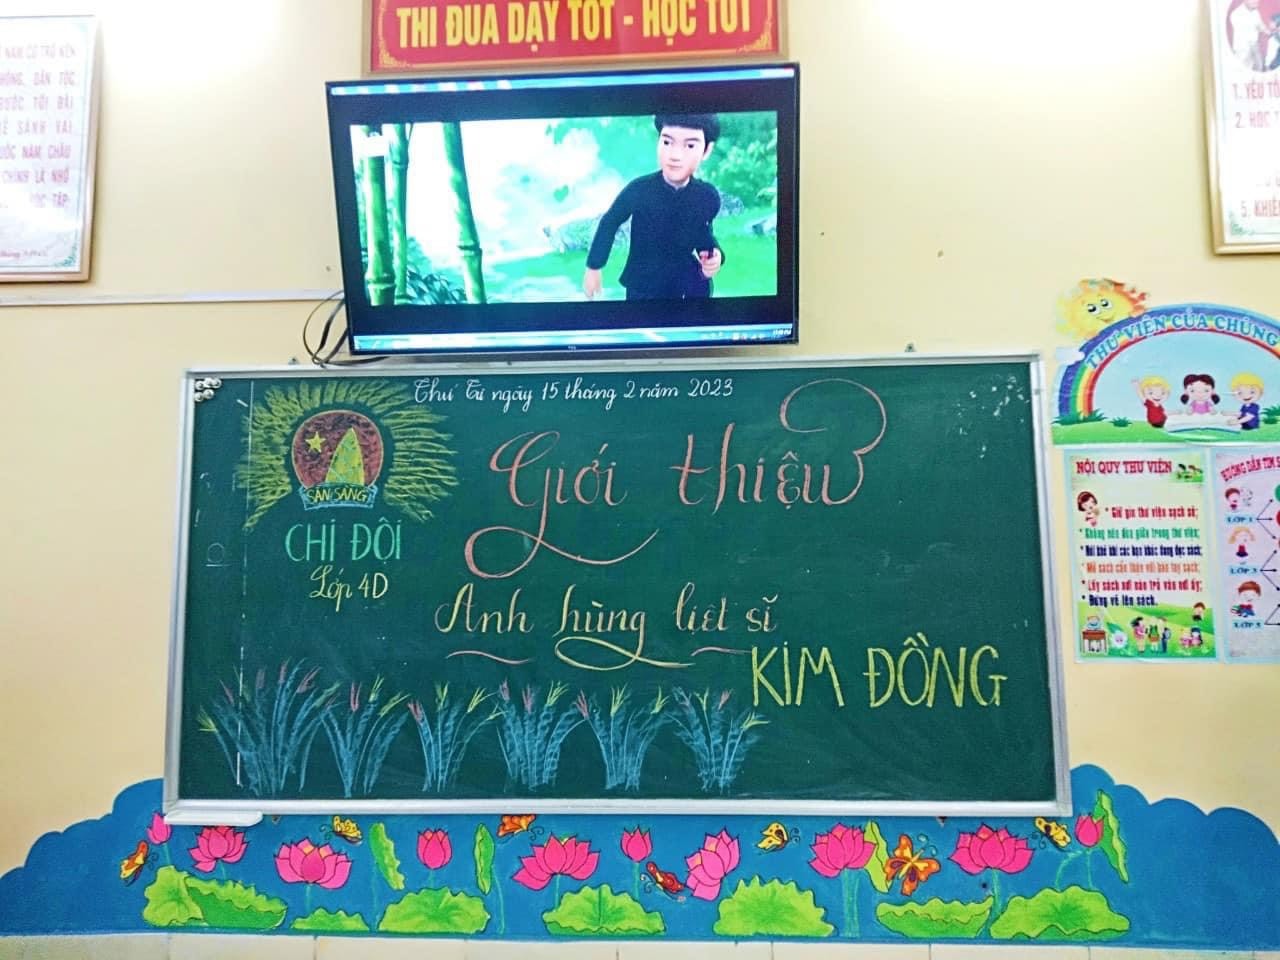 THI ĐUA DẠY TỐT - HỌC TỐT
Thứ Tư ngày 15 tháng 2 năm 2023
SẴN SÀNG
CHI ĐỘI
Lớp 4D
Giới thiệu
Anh hùng liệt sĩ
KIM ĐỒNG
THƯ VIỆN CỦA CHÚNG
NỘI QUY THƯ VIỆN
* Giữ gìn thư viện sạch sẽ;
* Không nên đùa giỡn trong thư viện;
* Nói khẽ khi các bạn khác đang đọc sách;
* Mở sách cẩn thận với bàn tay sạch;
* Lấy sách nơi nào trả vào nơi ấy;
* Đứng về lên sách.
LỚP 1
LỚP 3
LỚP 5
NAM CÓ TRỞ NÊN
DÂN TỘC
BƯỚC TỚI ĐÀI
SÁNH VAI
NĂM CHÂU
CHÍNH LÀ NHỜ
HỌC TẬP
1. YÊU TỔ
2. HỌC T
5. KHIÊM